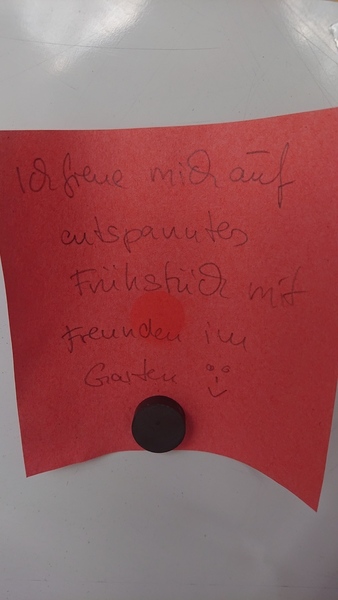 Ich freue mich auf
entspanntes
Frühstück mit
Freunden im
Garten